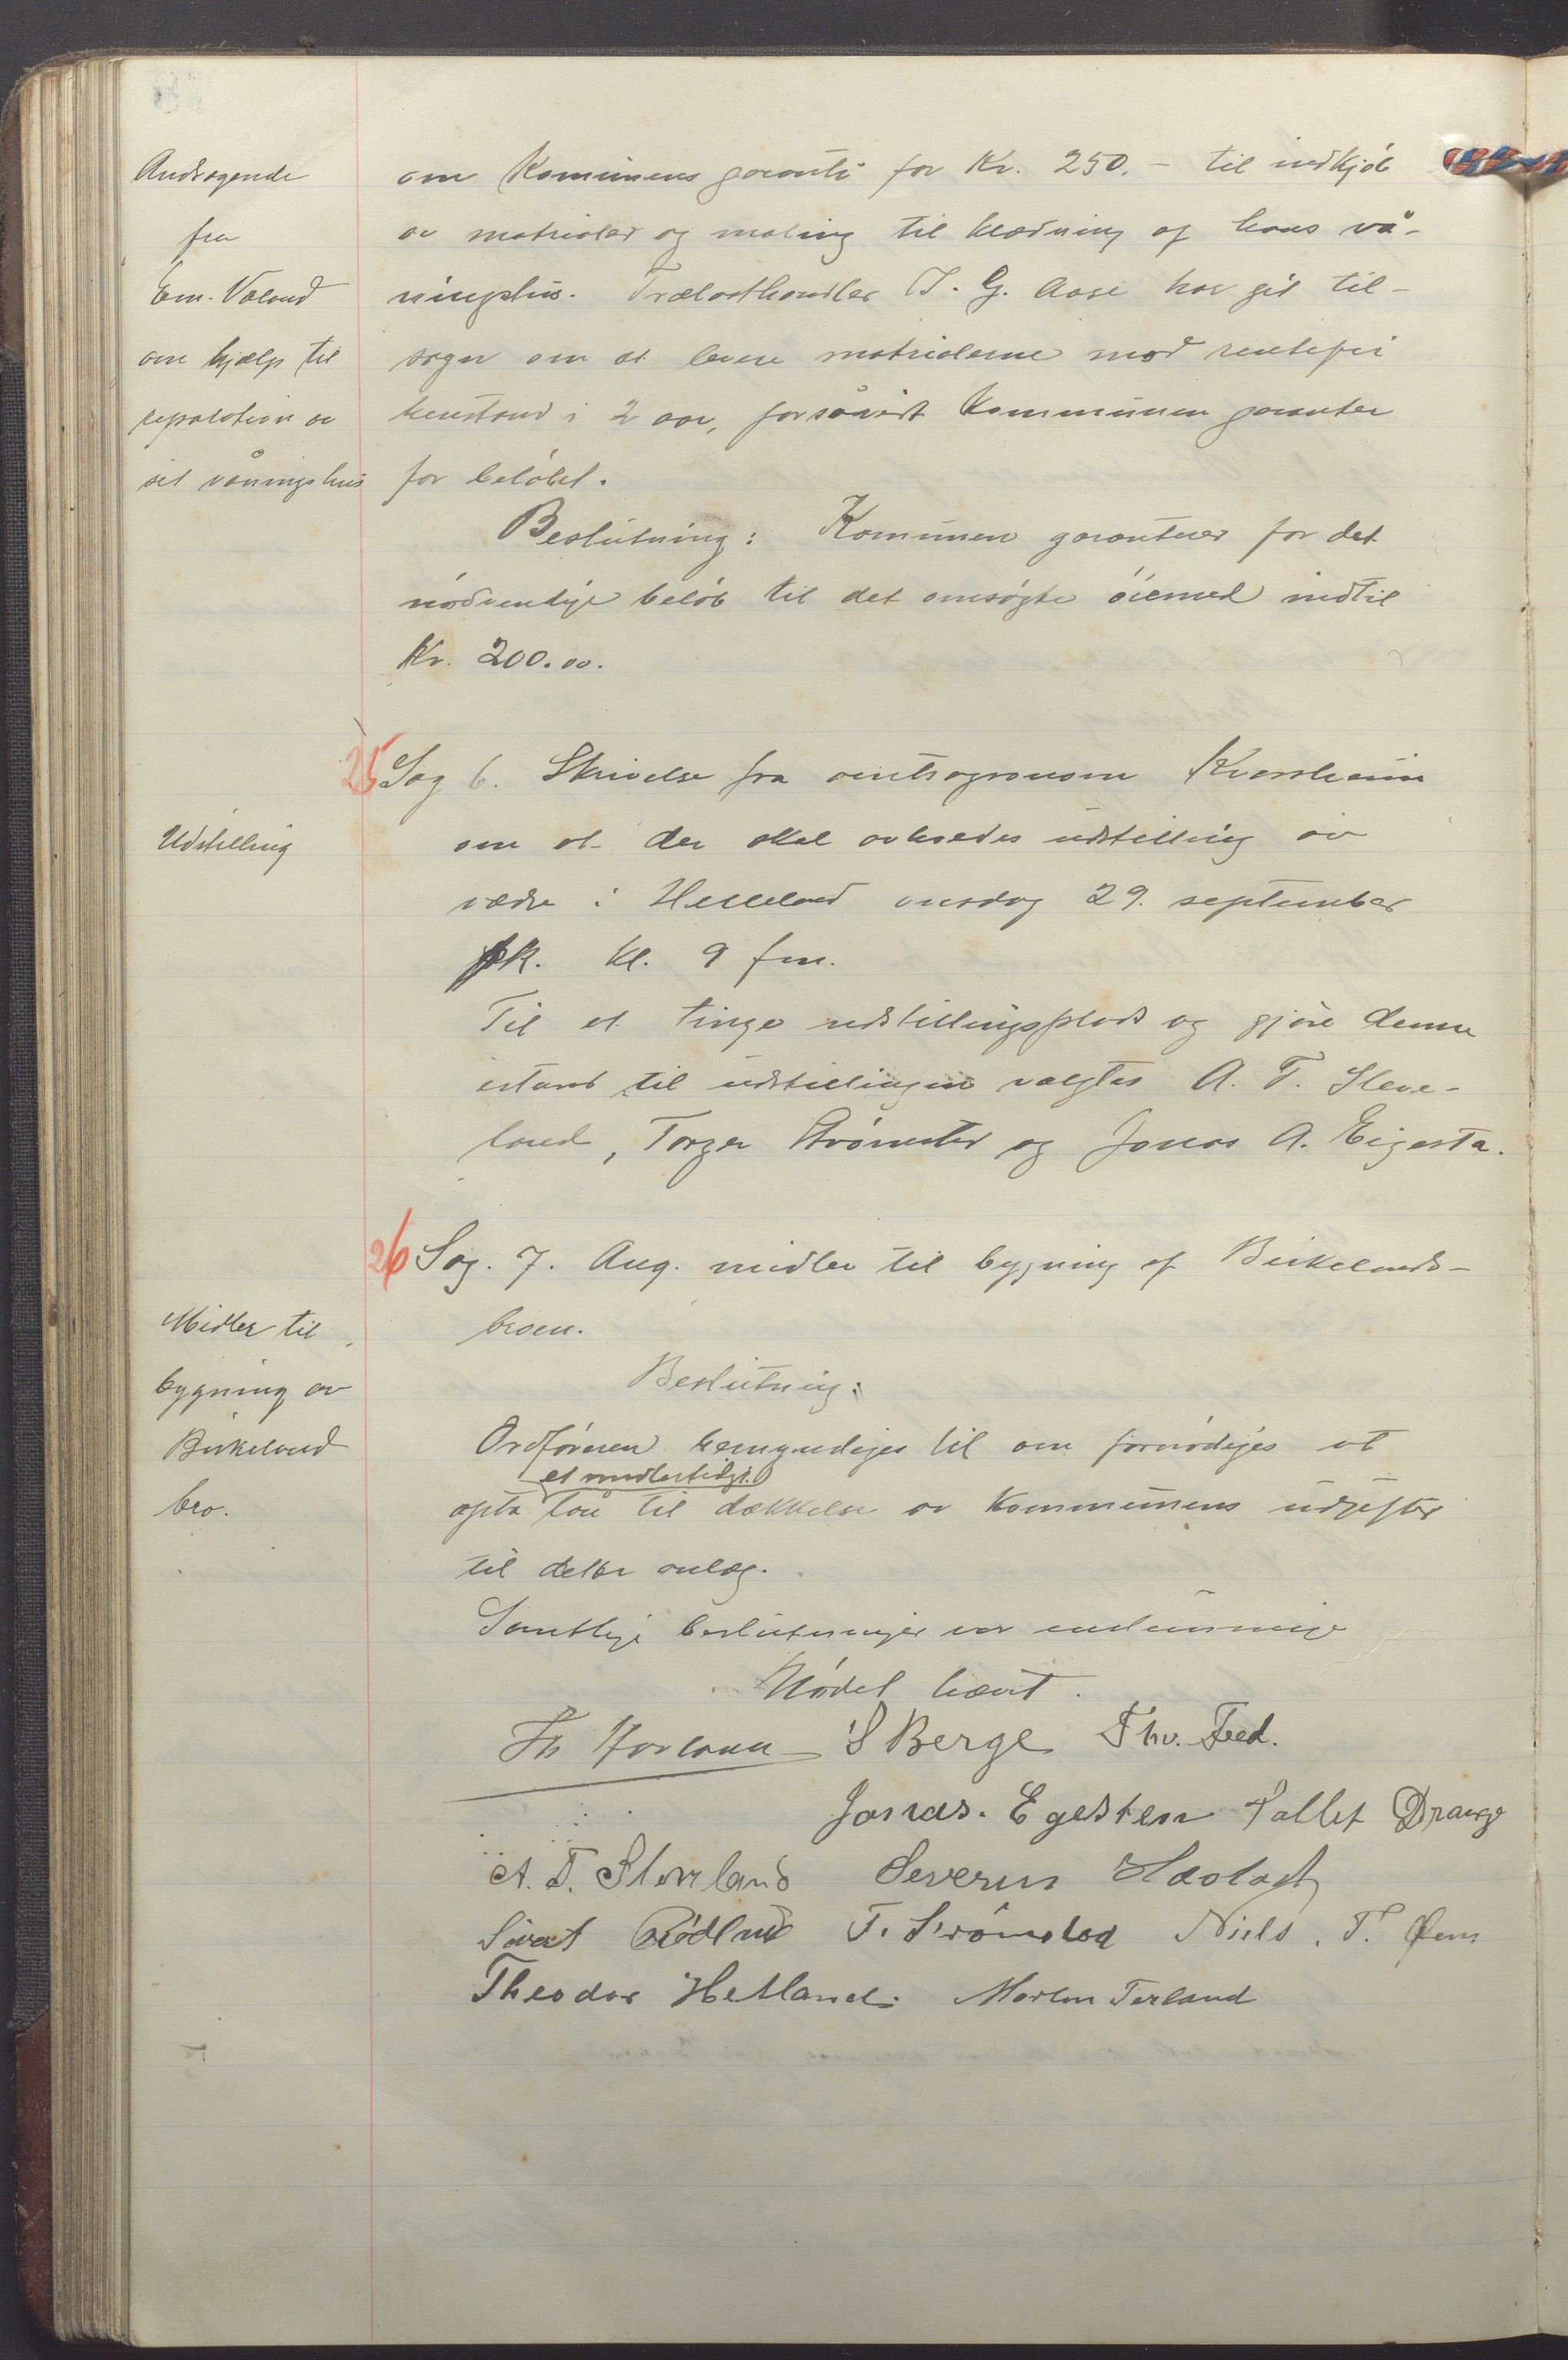 Andragende
fra
Em. Våland
om hjælp til
reparation av
sit våningshus
om Komunens garanti for Kr. 250.- til indkjöb
av matrialer og maling til klædning af hans vå-
ningshus. Trælasthandler T. G. Aase har git til-
sagn om at levere matrialerne mod rentefri
henstand i 2 aar, forsåvidt Kommunen garanter
for belöbet.
Beslutning: Komunen garanterer for det
nödvendige belöb til det omsögte öiemed indtil
Kr. 200.00.
25 Sag 6. Skrivelse fra amtsagronom Kvarsheim
Udstilling
om at der skal avholdes udstilling av
vædre i Helleland onsdag 29. september
kl. 9 fm.
Til at tinge udstillingsplads og gjöre denne
istand til udstillingen valgtes A. T. Sleve-
land, Torger Strömstad og Jonas A. Eigesta.
26 Sag. 7. Ang. midler til bygning af Birkelands-
broen.
Midler til
bygning av
Birkeland
bro.
Beslutning:
Ordföreren bemyndiges til om fornödiges at
et midlertidigt
opta lån til dækkelse av Kommunens udgifter
til dette anlæg.
Samtlige beslutninger var enstemmige
Mödet hævt.
Th S Berge Thv. Feed.
Jonas. Egesten Tallef Drange
A. T. Sleveland Severin
Sivert Rödland T. Strömstad Niels. T.
Theodor Hetland. Morten Terland